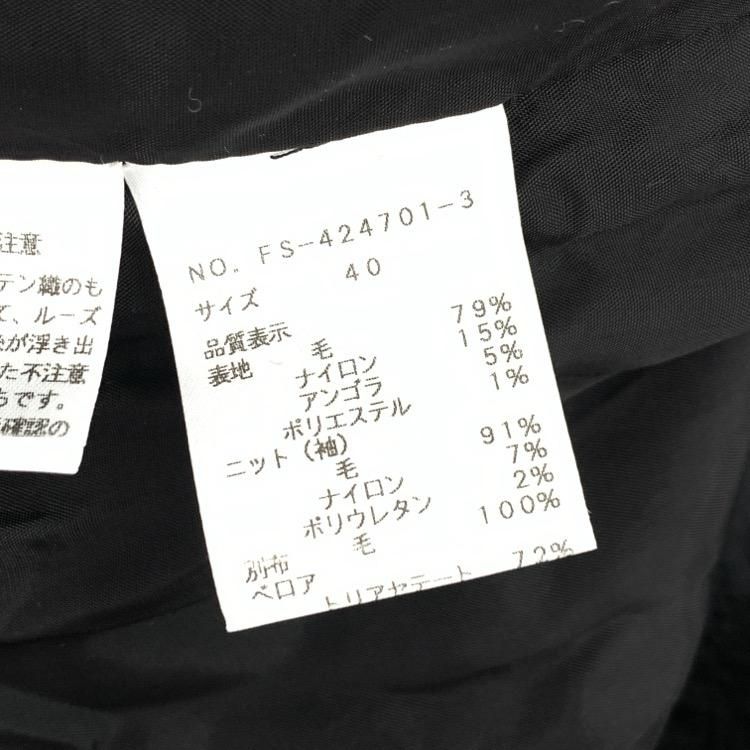 注意
テン織のも
て、ルーズ
が浮き出
た不注意
うです。
確認の
NO. FS-424701-3
サイズ 40
品質表示
表地 毛 79%
ナイロン 15%
アンゴラ 5%
ポリエステル 1%
ニット(袖)
毛 91%
ナイロン 7%
ポリウレタン 2%
別布 毛 100%
ベロア
トリアセテート 72%